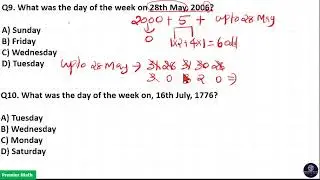 Q9. What was the day of the week on 28th May, 2006?
2000 + 5 + upto 28 May
A) Sunday
0
B) Friday
1×2+4×1=6 odd
C) Wednesday
D) Tuesday
upto 28 May → 31 28 31 30 28
3 0 3 2 0 ⇒
Q10. What was the day of the week on, 16th July, 1776?
A) Tuesday
B) Wednesday
C) Monday
D) Saturday
Premier Math